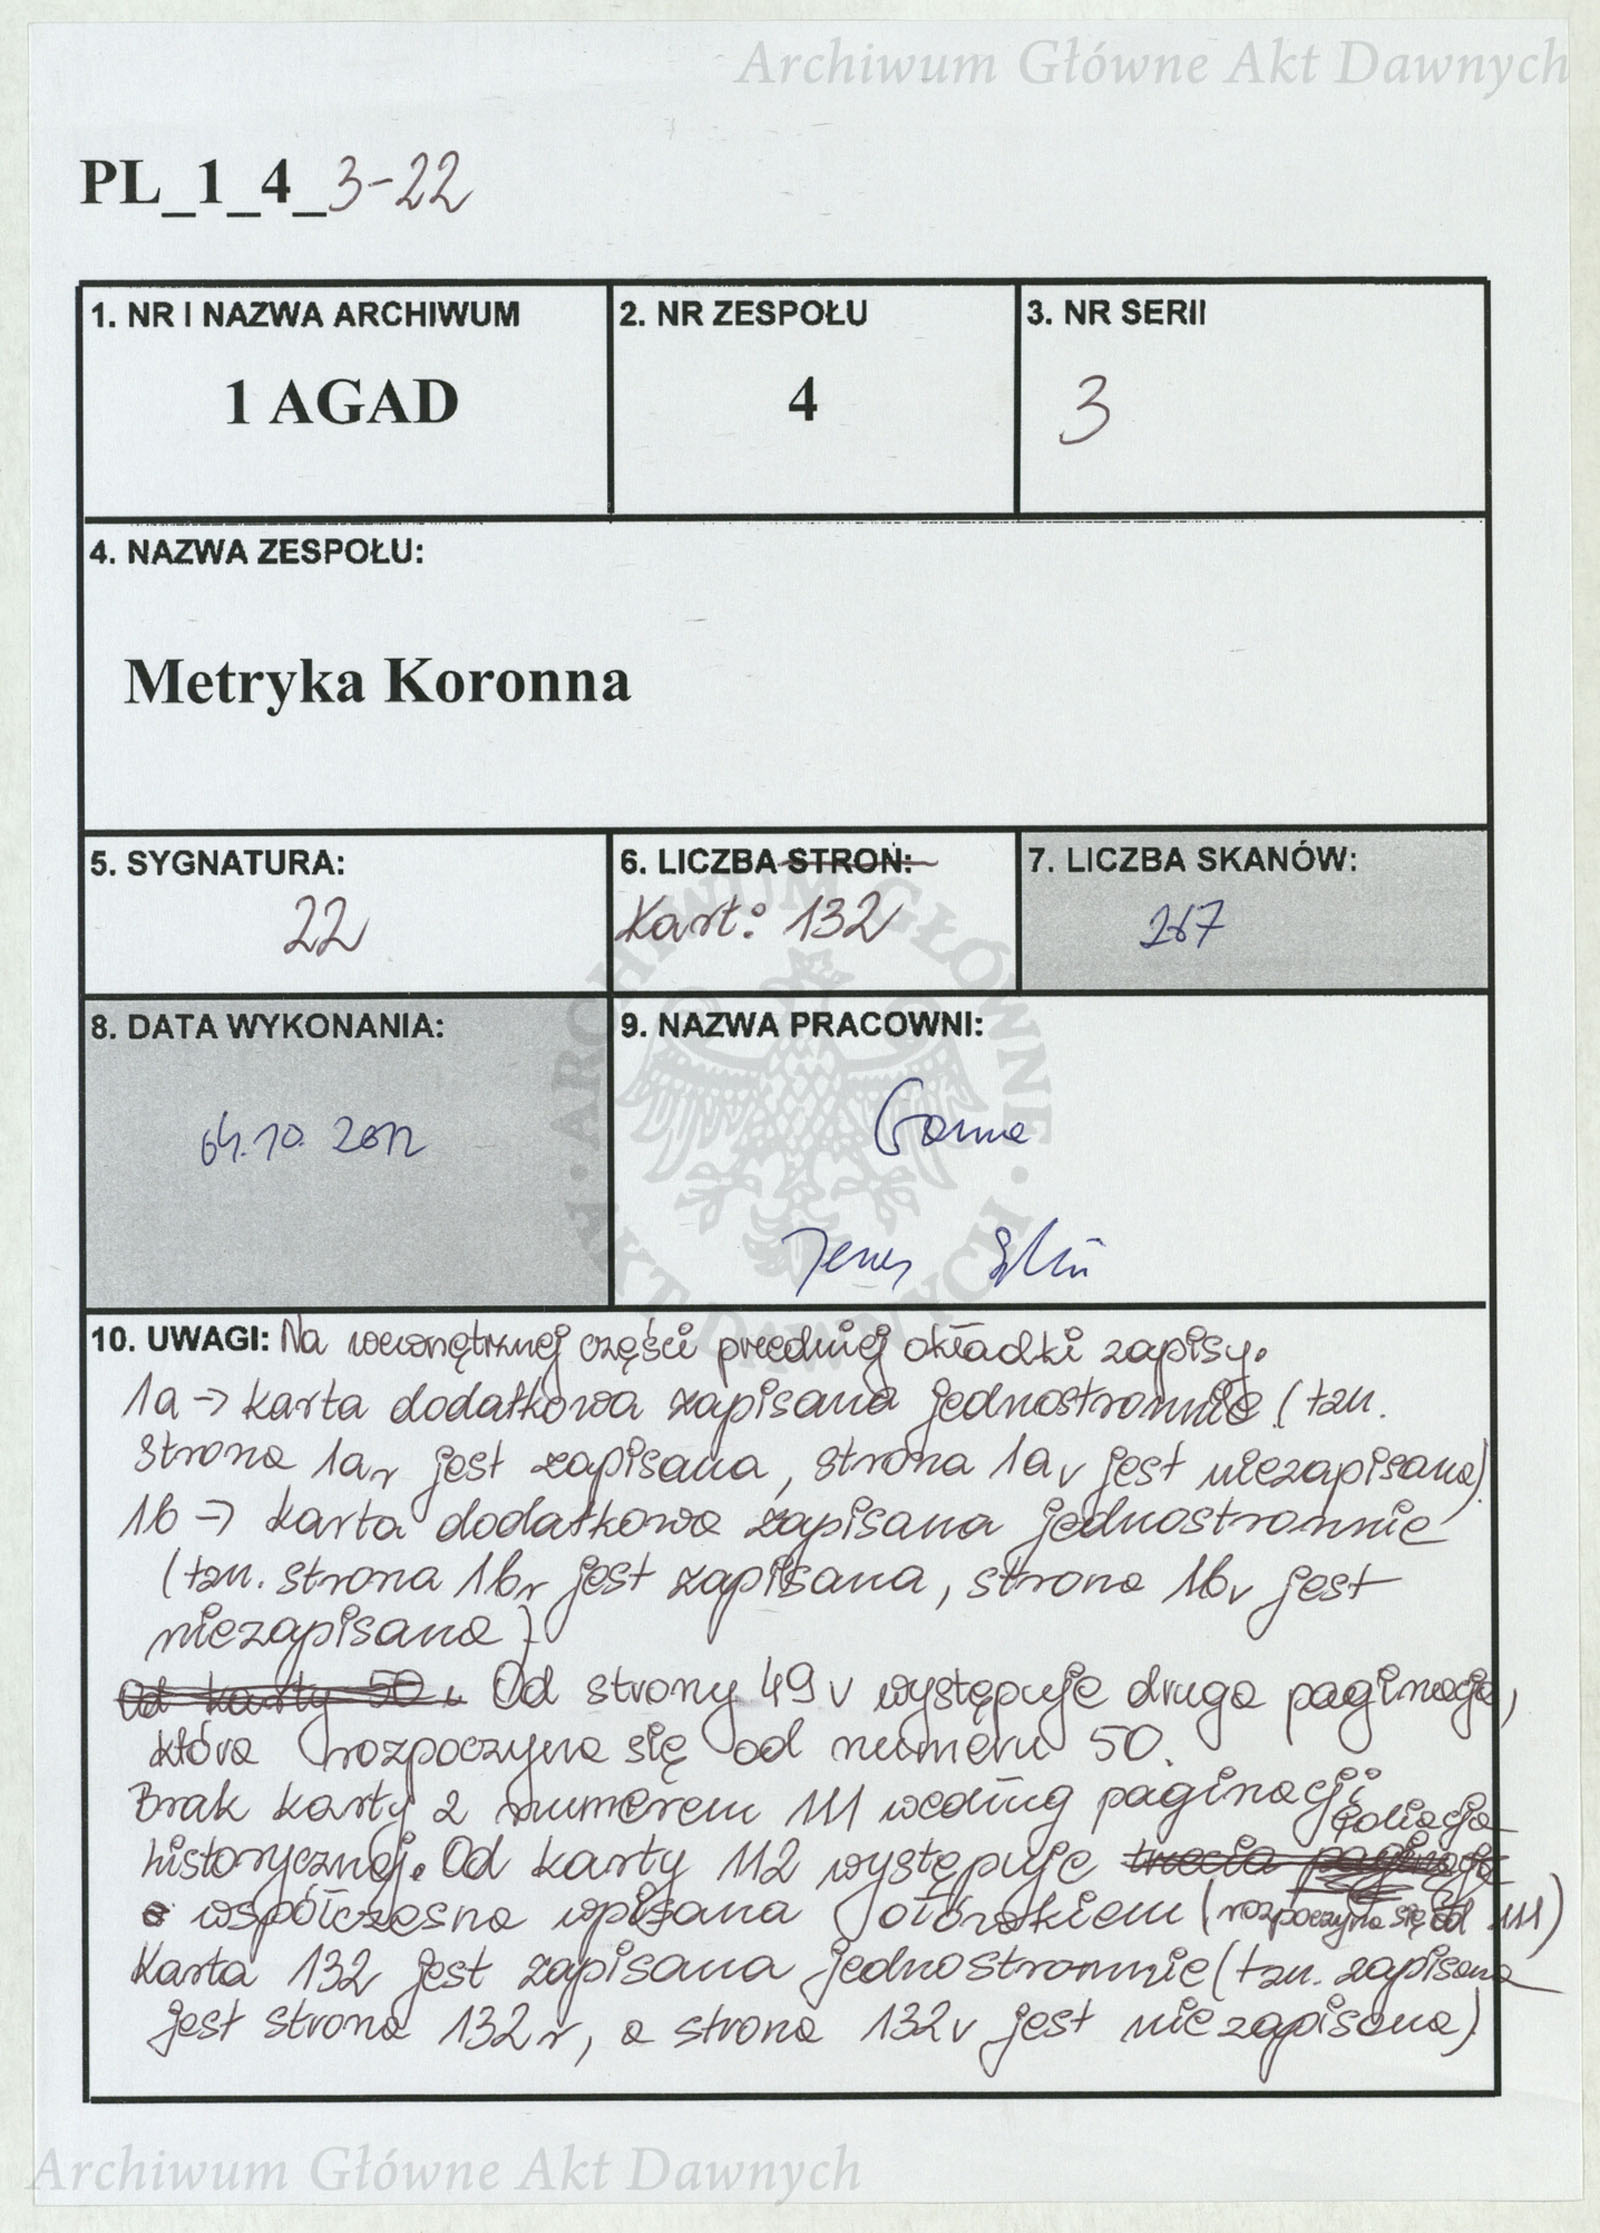 Archiwum Główne Akt Dawnych
PL_1_4_3-22
1. NR I NAZWA ARCHIWUM
1 AGAD
2. NR ZESPOŁU
4
3. NR SERII
3
4. NAZWA ZESPOŁU:
Metryka Koronna
5. SYGNATURA:
22
6. LICZBA STRON:
Kart: 132
7. LICZBA SKANÓW:
267
8. DATA WYKONANIA:
04.10.2012
9. NAZWA PRACOWNI:
10. UWAGI: Na wewnętrznej części przedniej okładki zapisy.
1a → karta dodatkowa zapisana jednostronnie (tzn.
strona 1ar jest zapisana, strona 1av jest niezapisana).
1b → karta dodatkowa zapisana jednostronnie
(tzn. strona 1br jest zapisana, strona 1bv jest
niezapisana)
Od karty 50 Od strony 49v występuje druga paginacja,
która rozpoczyna się od numeru 50.
Brak karty z numerem 111 według paginacji
historycznej. Od karty 112 występuje trzecia paginacja foliacja
współczesna wpisana ołówkiem (rozpoczyna się od 111)
Karta 132 jest zapisana jednostronnie (tzn. zapisana
jest strona 132r, a strona 132v jest niezapisana)
ARCHIWUM GŁÓWNE · AKT DAWNYCH ·
Archiwum Główne Akt Dawnych